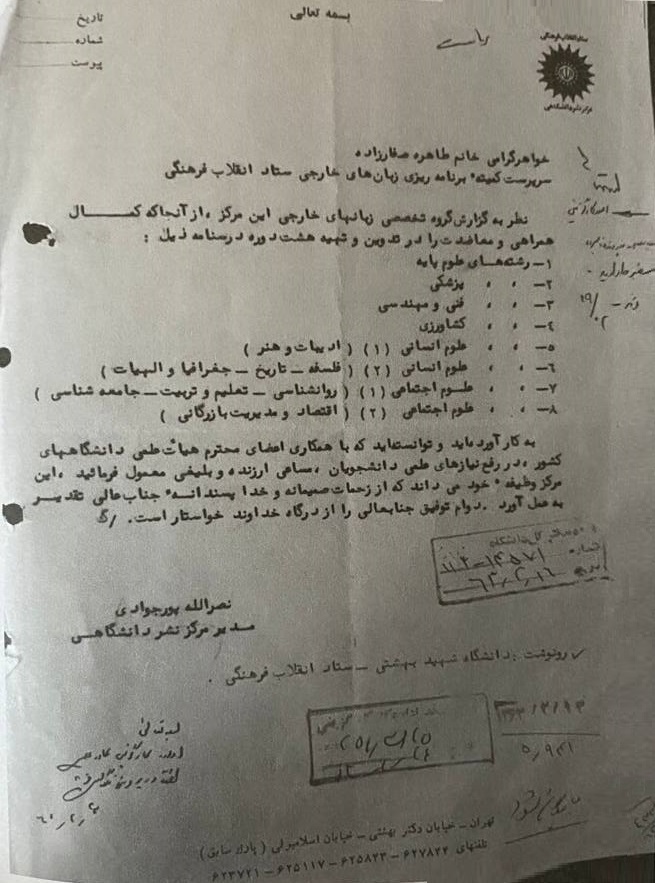 بسمه تعالی
تاریخ
شماره
پیوست
ریاست
ستاد انقلاب فرهنگی
مرکز نشر دانشگاهی
خواهر گرامی خانم طاهره صفارزاده
سرپرست کمیتهٔ برنامه ریزی زبان‌های خارجی ستاد انقلاب فرهنگی
نظر به گزارش گروه تخصصی زبانهای خارجی این مرکز ،از آنجا که کمــــال
همراهی و معاضدت را در تدوین و تهیه هشت دوره درسنامه ذیل :
۱ــ رشته‌هــای علوم پایه
۲ــ ، ، پزشکی
۳ــ ، ، فنی و مهندسی
٤ــ ، ، کشاورزی
۵ــ ، ، علوم انسانی (۱) ( ادبیات و هنر )
۶ــ ، ، علوم انسانی (۲) ( فلسفه ــ تاریخ ــ جغرافیا و الهیات )
۷ــ ، ، علــوم اجتماعی (۱) ( روانشناسی ــ تعلیم و تربیت ــ جامعه شناسی )
۸ــ ، ، علوم اجتماعی (۲) ( اقتصاد و مدیریت بازرگانی )
به کار آورده‌اید و توانسته‌اید که با همکاری اعضای محترم هیأت علمی دانشگاههای
کشور ،در رفع نیازهای علمی دانشجویان ،مساعی ارزنده و بلیغی معمول فرمائید ،این
مرکز وظیفهٔ خود می داند که از زحمات صمیمانه و خدا پسندانــهٔ جناب عالی تقدیــر
به عمل آورد .دوام توفیق جنابعالی را از درگاه خداوند خواستار است .
نصرالله پورجوادی
مدیر مرکز نشر دانشگاهــی
رونوشت :دانشگاه شهید بهشتی ــ ستاد انقلاب فرهنگی .
تهران ــ خیابان دکتر بهشتی ــ خیابان اسلامبولی ( پارک سابق )
تلفنهای ۶۲۷۸۲۴ ــ ۶۲۵۸۳۳ ــ ۶۲۵۱۱۷ ــ ۶۲۳۷۲۱